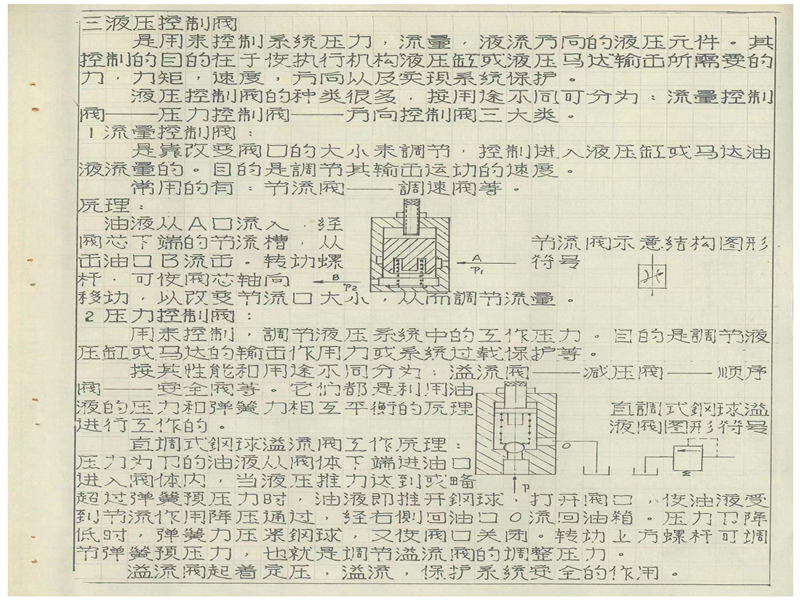 三液压控制阀
是用来控制系统压力，流量，液流方向的液压元件。其
控制的目的在于使执行机构液压缸或液压马达输出所需要的
力，力矩，速度，方向以及实现系统保护。
液压控制阀的种类很多，按用途不同可分为：流量控制
阀——压力控制阀——方向控制阀三大类。
1流量控制阀：
是靠改变阀口的大小来調节，控制进入液压缸或马达油
液流量的。目的是調节其输出运动的速度。
常用的有：节流阀——調速阀等。
原理：
油液从A口流入，经
阀芯下端的节流槽，从
出油口B流出。转动螺
杆，可使阀芯轴向
移动，以改变节流口大小，从而調节流量。
A
P1
B
P2
节流阀示意结构图形
符号
2压力控制阀：
用来控制，調节液压系统中的工作压力。目的是調节液
压缸或马达的输出作用力或系统过载保护等。
按其性能和用途不同分为：溢流阀——减压阀——顺序
阀——安全阀等。它们都是利用油
液的压力和弹簧力相互平衡的原理
进行工作的。
直调式鋼球溢流阀工作原理：
压力为P的油液从阀体下端进油口
进入阀体内，当液压推力达到或略
超过弹簧预压力时，油液即推开鋼球，打开阀口，使油液受
到节流作用降压通过，经右側回油口O流回油箱。压力P降
低时，弹簧力压紧鋼球，又使阀口关闭。转动上方螺杆可調
节弹簧预压力，也就是調节溢流阀的調整压力。
溢流阀起着定压，溢流，保护系统安全的作用。
O
P
直調式鋼球溢
液阀图形符号